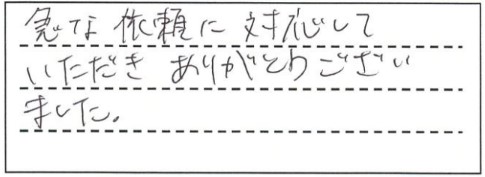 急な依頼に対応して
いただき ありがとうござい
ました。